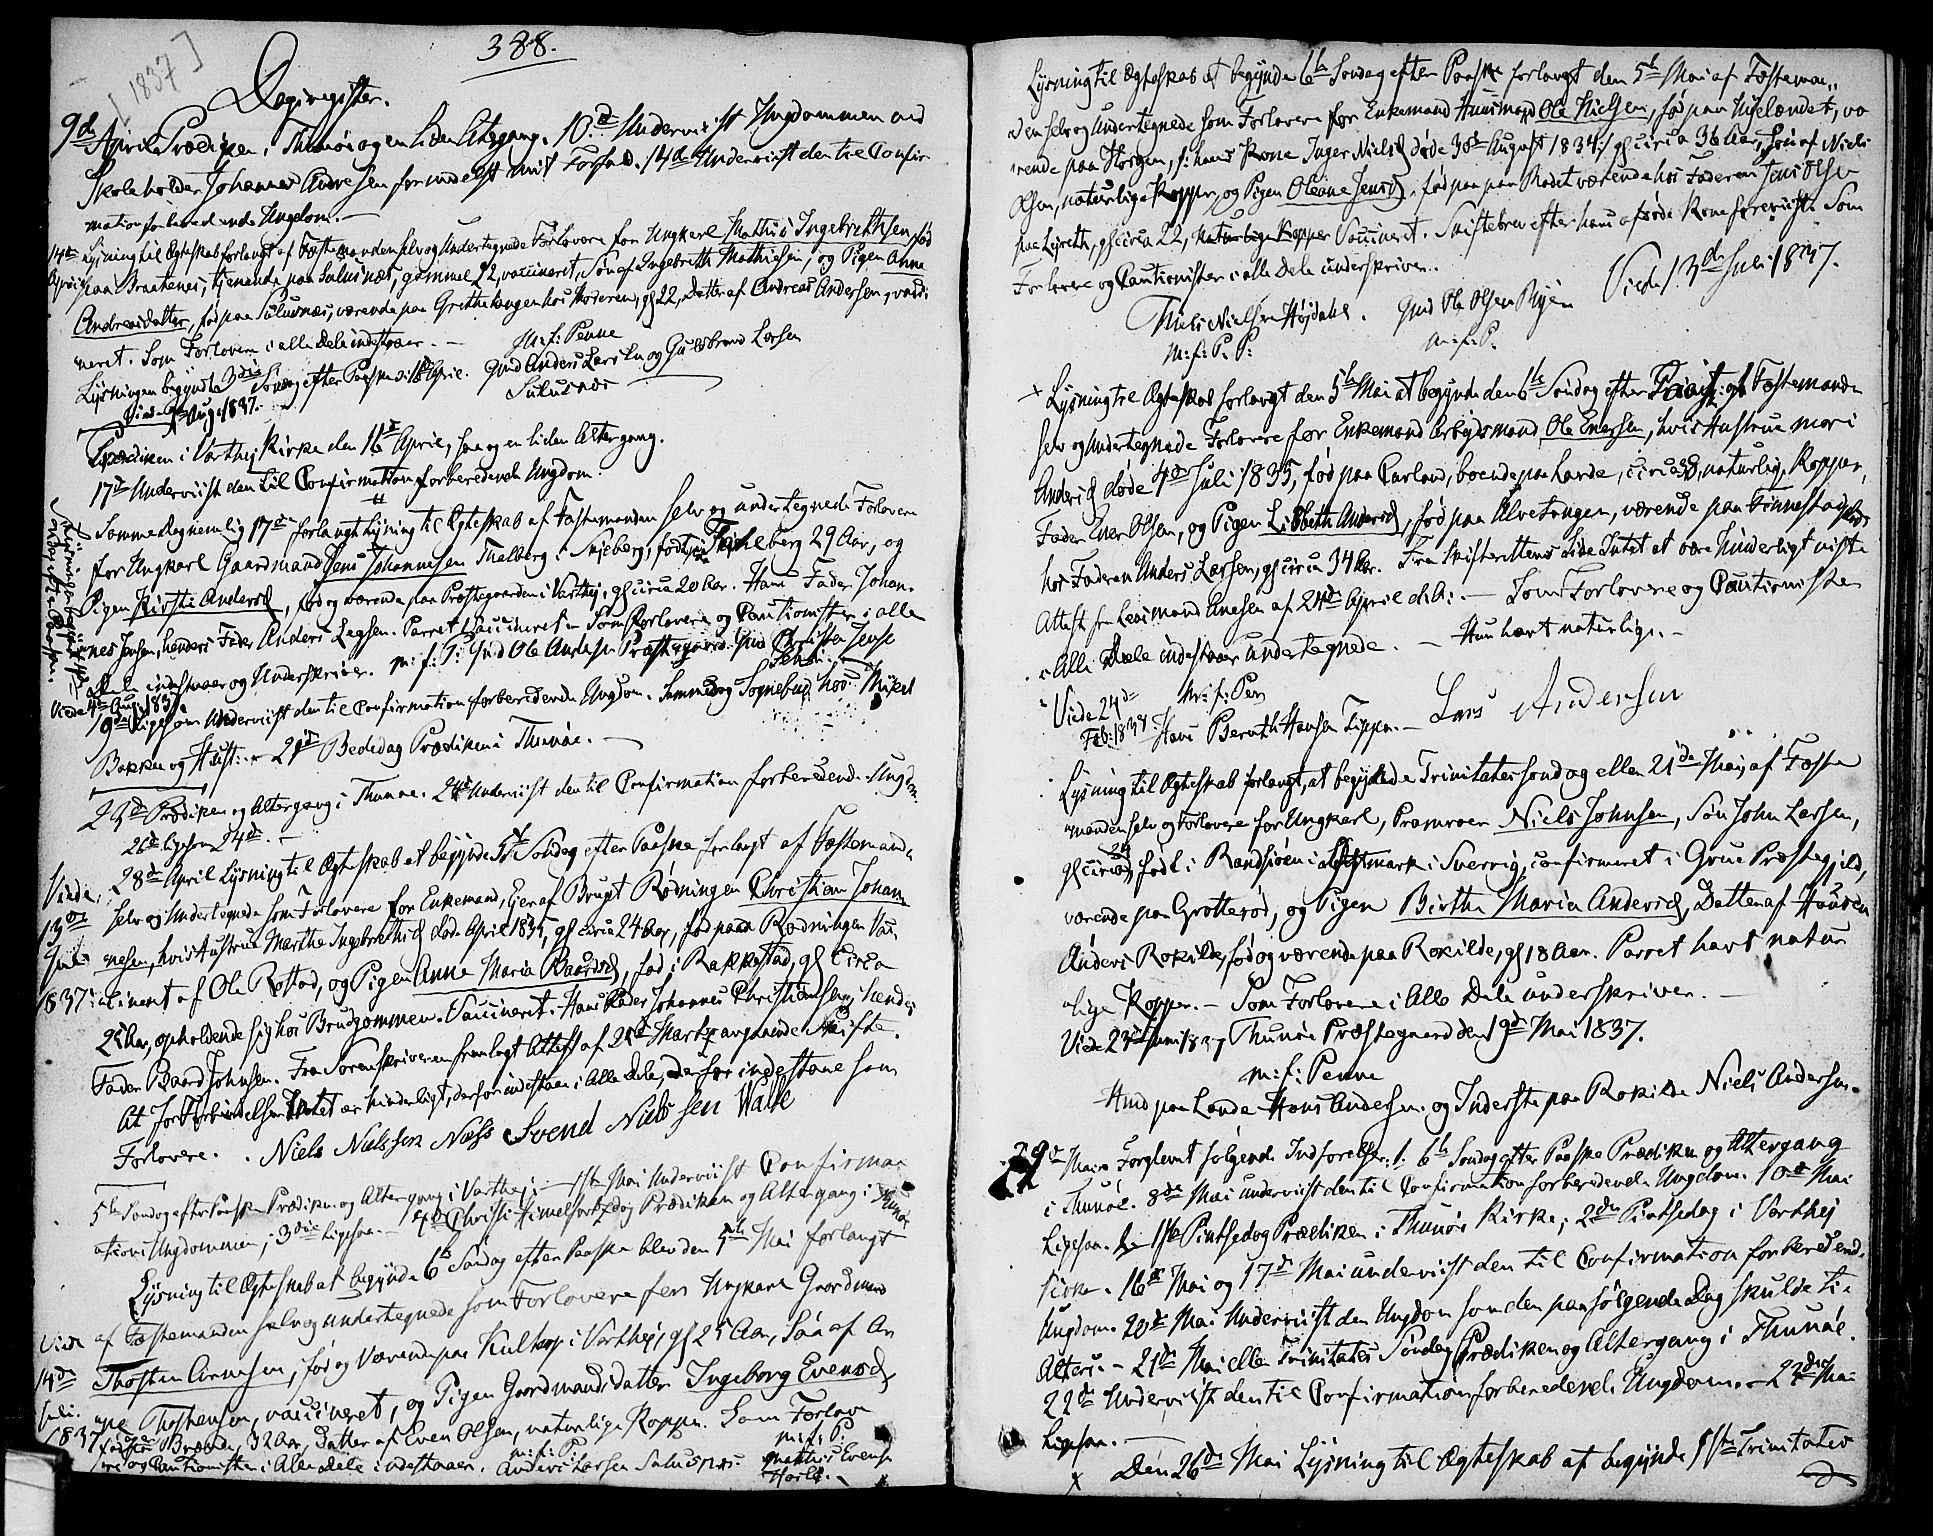 388.
[1837]
Dagregister.
9d April Prædiken i Thunøe og en liden Altergang. 10d Underviist Ungdommen ved
Skoleholder Johannes Andresen formedelst mit Forfald. 14d Underviist den til Confir
mation forberedende Ungdom.
14de Lysning til Ægteskab forlangt af Fæstemanden selv og Undertegnede Forlovere for Ungkarl Mathis Ingebrethsen, fød
April paa Braatenes, tjenende paa Sulusnæs, gammel 22, vaccineret, Søn af Ingebreth Mathiesen, og Pigen Anne
Andreasdatter, fød paa Sulusnæs, værende paa Grethehaugen hos Moderen, gl 22, Datter af Andreas Andersen, vacci
neret. Som Forlovere i alle Dele indestaaer.
m: f: Penne
Lysningen begyndte 3die Søndag efter Paaske d: 16d April. Gmd Anders Larsen og Gulbrand Larsen
Sulusnæs
Viede Aug: 1837.
Prædiken i Varthej Kirke den 16d April, saa og en liden Altergang.
17d Underviist den til Confirmation forberedende Ungdom.
Samme Dag nemlig 17de forlangt Lysning til Ægteskab af Fæstemanden selv og undertegnede Forlovere
for Ungkarl Gaardmand Jens Johannesen Thalberg i Skjeberg, fød paa Thalberg 29 Aar, og
Pigen Kirsti Andersd, fød og værende paa Præstegaarden i Varthej, gl circa 20 Aar. Hans Fader Johan
nes Jensen, hendes Fader Anders Larsen. Parret vaccineret. Som Forlovere og Cautionister i alle
Dele indestaaer og Underskriver. m: f: P: Gmd Ole Andersen Præstegaard. Gmd Christen Jense
Viede 4de Aug: 1837
19de Ligesom Underviist den til Confirmation forberedende Ungdom. Samme Dag Sognebud hos Mikel
Bakken og Hust: 21de Bededag Prædiken i Thunøe.
23de Prædiken og Altergang i Thunøe. 24de Underviist den til Confirmation forberedende Ungdom.
26de ligesom 24de.
28de April Lysning til Ægteskab at begynde 5te Søndag efter Paaske forlangt af Fæstemanden
Viede selv og Undertegnede som Forlovere for Enkemand, Ejer af Brugt Rødningen Christian Johan
13de nesen, hvis Hustrue Marthe Ingebrethsd døde April 1835, gl circa 24 Aar, fød paa Rødningen Vac
Juli
1837. cineret af Ole Rostad, og Pigen Anne Maria Baardsd, fød i Rakkestad, gl circa
25 Aar, opholdende sig hos Brudgommen. Vaccineret. Hans Fader Johannes Christiansen, hendes
Fader Baard Johnsen. Fra Sorenskriveren fremlagt Attest af 25d Marts angaaende Skifte.
At for Forbindelsen Intet er hinderligt, derfor indestaaer i Alle Dele, derfor indestaae som
Forlovere. Niels Nielssen Næss Svend Nielssen Walle
5te Søndag efter Paaske Prædiken og Altergang i Varthej. 1ste Mai Underviist Confirma
tions Ungdommen, 3die ligesaa. 4de Christi Himmelfartsdag Prædiken og Altergang i Thunøe
Lysning til Ægteskab at begynde 6te Søndag efter Paaske blev den 5te Mai forlangt
af Fæstemanden selv og undertegnede som Forlovere for Ungkarl Gaardmand
Viede
14de Thosten Arnesen, fød og Værende paa Kultorp i Varthej, gl 25 Aar, Søn af Ar
Juli. ne Thostensen, vaccineret, og Pigen Gaardmandsdatter Ingeborg Evensd,
1837 fød paa Brende, 32 Aar, Datter af Even Olsen, naturlige Kopper. Som Forlov
ere og Cautionister i Alle Dele indestaaer. m: f: P: Anders Larsen Sulusnæs. m: f: P: Mathis Evense
Lysning til Ægteskab at begynde 6te Søndag efter Paaske forlangt den 5te Mai af Fæsteman
den selv og Undertegnede som Forlovere for Enkemand Huusmand Ole Nielsen, fød paa Huselandet, væ
rende paa Horgen, /: hans Kone Inger Nielsd døde 30de August 1834 :/ gl circa 36 Aar, Søn af Niels
Olsen, naturlige Kopper, og Pigen Oleane Jensd, fød paa Rødet værende hos Faderen Jens Olsen
paa Lysreth, gl circa 22, naturlige Kopper Vaccineret. Skiftebrev efter hans afdøde Kone foreviist. Som
Forlovere og Cautionister i alle Dele underskriver.
Viede 13de Juli 1837.
Niels Nielsen Højdahl. Gmd Ole Olsen Ryen
m: f: P. P: m: f: P.
Lysning til Ægteskab forlangt den 5te Mai at begynde den 6te Søndag efter Trinit: af Fæstemanden
selv og Undertegnede Forlovere for Enkemand Arbejdsmand Ole Enersen, hvis Hustrue Mari
Andersd døde 4de Juli 1835, fød paa Carland, boende paa Larde, circa 38, naturlige Kopper,
Fader Ener Olsen, og Pigen Lisbeth Andersd, fød paa Elvetangen, værende paa Finnestad
hos Faderen Anders Larsen, gl circa 34 Aar. Fra Skifterettens Side Intet at være hinderligt viste
Attest fra Lensmand Anesen af 24de April d: A: Som Forlovere og Cautionister
i Alle Dele indestaaer undertegnede. Hun havt naturlige.
Viede 24de m: f: Pen
Feb: 1838 Hans Bernth Hansen Lippa. Lars Andersen
Lysning til Ægteskab forlangt, at begynde Trinitatissøndag eller 21de Mai, af Fæste
manden selv og Forlovere for Ungkarl, Pramroer Niels Johnsen, Søn John Larsen,
gl circa 24, født i Randsjøen i Lextmark i Sverrig, confirmeret i Grue Præstegjeld,
værende paa Grotterød, og Pigen Birthe Maria Andersd, Datter af
Anders Rokilde, fød og værende paa Rokilde, gl 18 Aar. Parret havt natur
lige Kopper. Som Forlovere i Alle Dele underskriver.
Viede 23de Juni 1837 Thunøe Præstegaard den 19de Mai 1837.
m: f: Penne
Hmd paa Lande Hans Andersen og Inderste paa Rokilde Niels Andersen.
29de Mai. Forglemt følgende Indførelser: 1. 6te Søndag efter Paaske Prædiken og Altergang
i Thunøe. 8de Mai underviist den til Confirmation forberedende Ungdom. 10de Mai
Ligesaa. 1ste Pintsedag Prædiken i Thunøe Kirke, 2den Pintsedag i Varthej
Kirke. 16de Mai og 17de Mai underviist den til Confirmation forberedende
Ungdom. 20de Mai Underviist den Ungdom som den paafølgende Dag skulde til
Alters. 21de Mai eller Trinitatis Søndag Prædiken og Altergang i Thunøe.
22de Underviist den til Confirmation forberedende Ungdom. 24de Mai
Ligesaa.
Den 26de Mai Lysning til Ægteskab at begynde 1ste Trinitatis